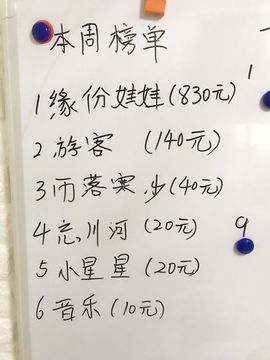 本周榜单
1缘份娃娃(830元)
1
2游客 (140元)
3雨落寞.少(40元)
4忘川河(20元)
9
5小星星(20元)
6音乐(10元)